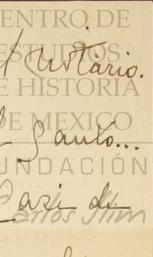 CENTRO DE
ESTUDIOS
Notario.
DE HISTORIA
DE MEXICO
Santo...
FUNDACIÓN
Casi de
Carlos Slim